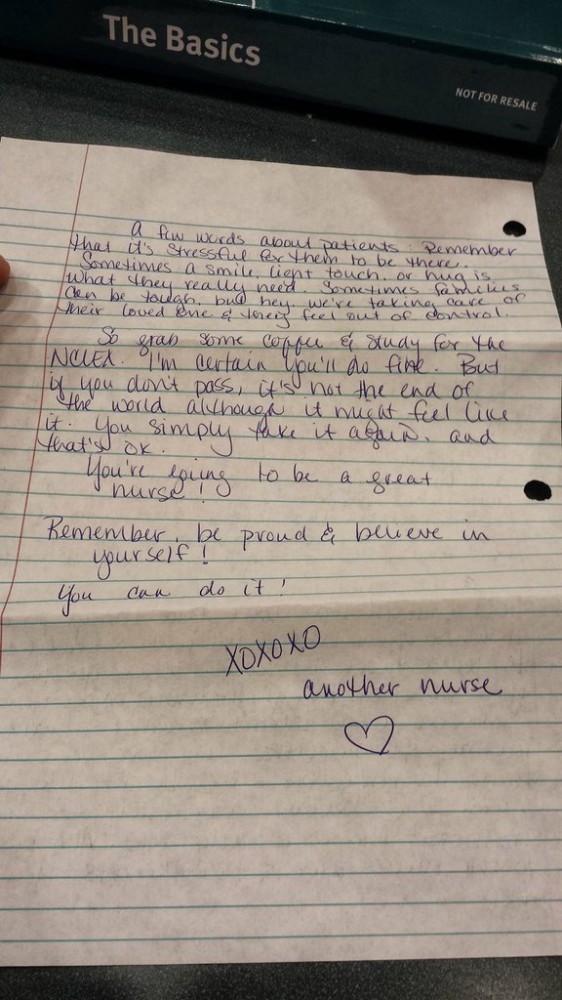 The Basics
NOT FOR RESALE
A few words about patients: Remember
that it's stressful for them to be there.
Sometimes a smile, light touch, or hug is
what they really need. Sometimes families
can be tough, but hey, we're taking care of
their loved one & they feel out of control.
So grab some coffee & study for the
NCLEX. I'm certain you'll do fine. But
if you don't pass, it's not the end of
the world although it might feel like
it. You simply take it again, and
that's ok.
You're going to be a great
nurse!
Remember, be proud & believe in
yourself!
You can do it!
XOXOXO
another nurse